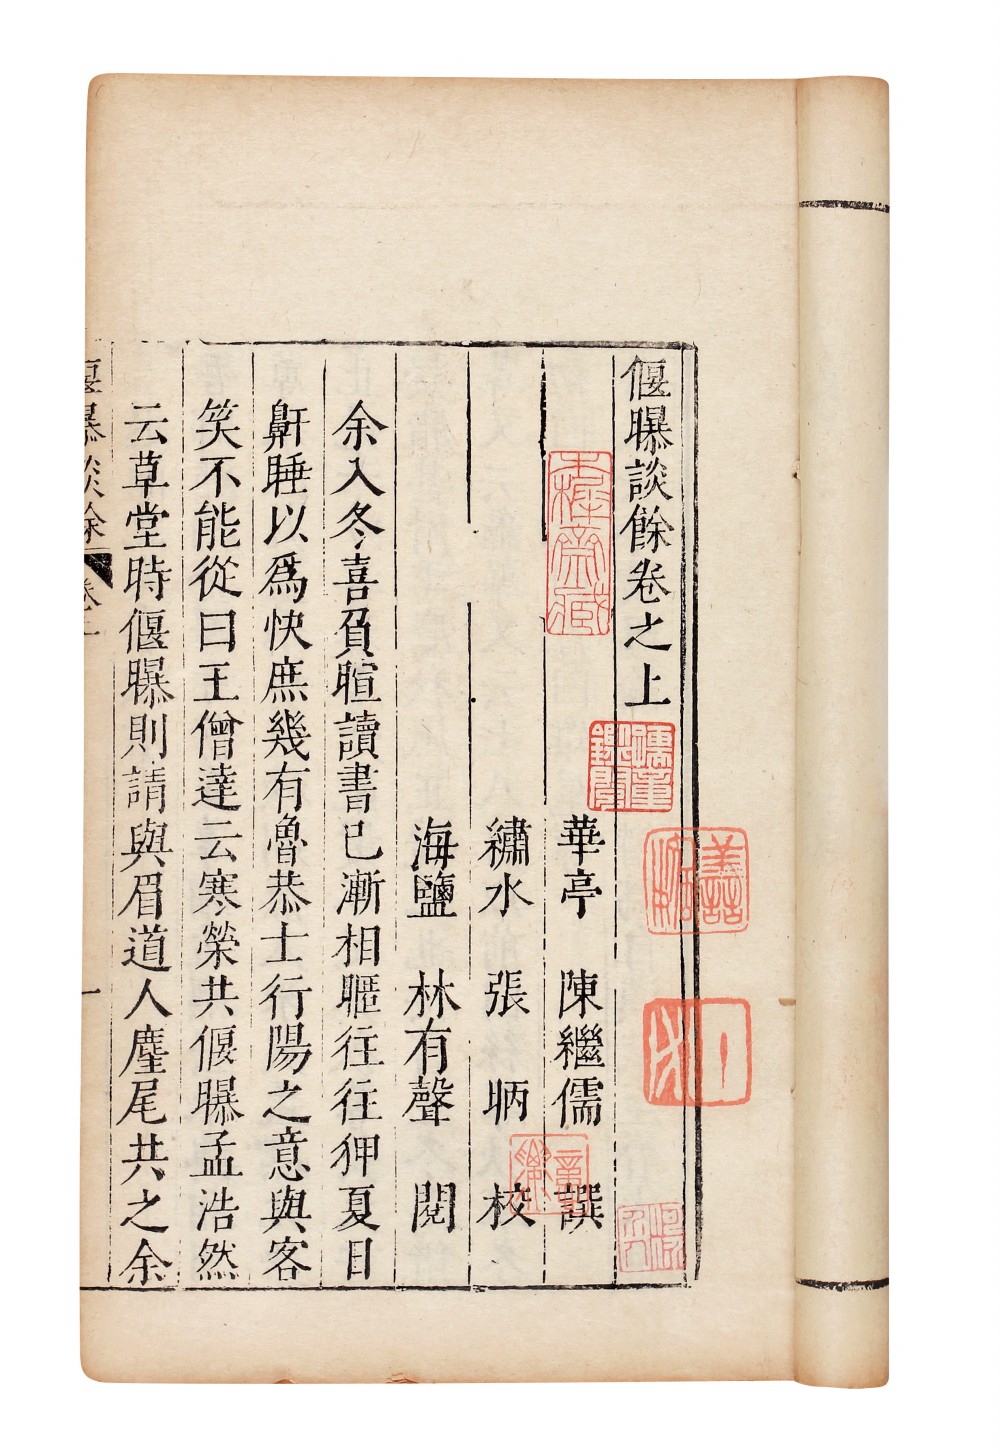 偃曝談餘卷之上
華亭 陳繼儒 譔
繡水 張昞 校
海鹽 林有聲 閱
余入冬喜負暄讀書已漸相暱往往狎夏日
鼾睡以爲快庶幾有魯恭士行陽之意與客
笑不能從曰王僧達云寒榮共偃曝孟浩然
云草堂時偃曝則請與眉道人麈尾共之余
偃曝談餘 卷上 一